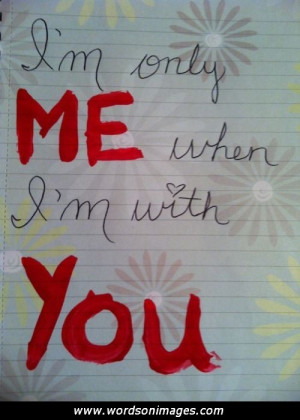 I'm only
ME when
I'm with
You
www.wordsonimages.com